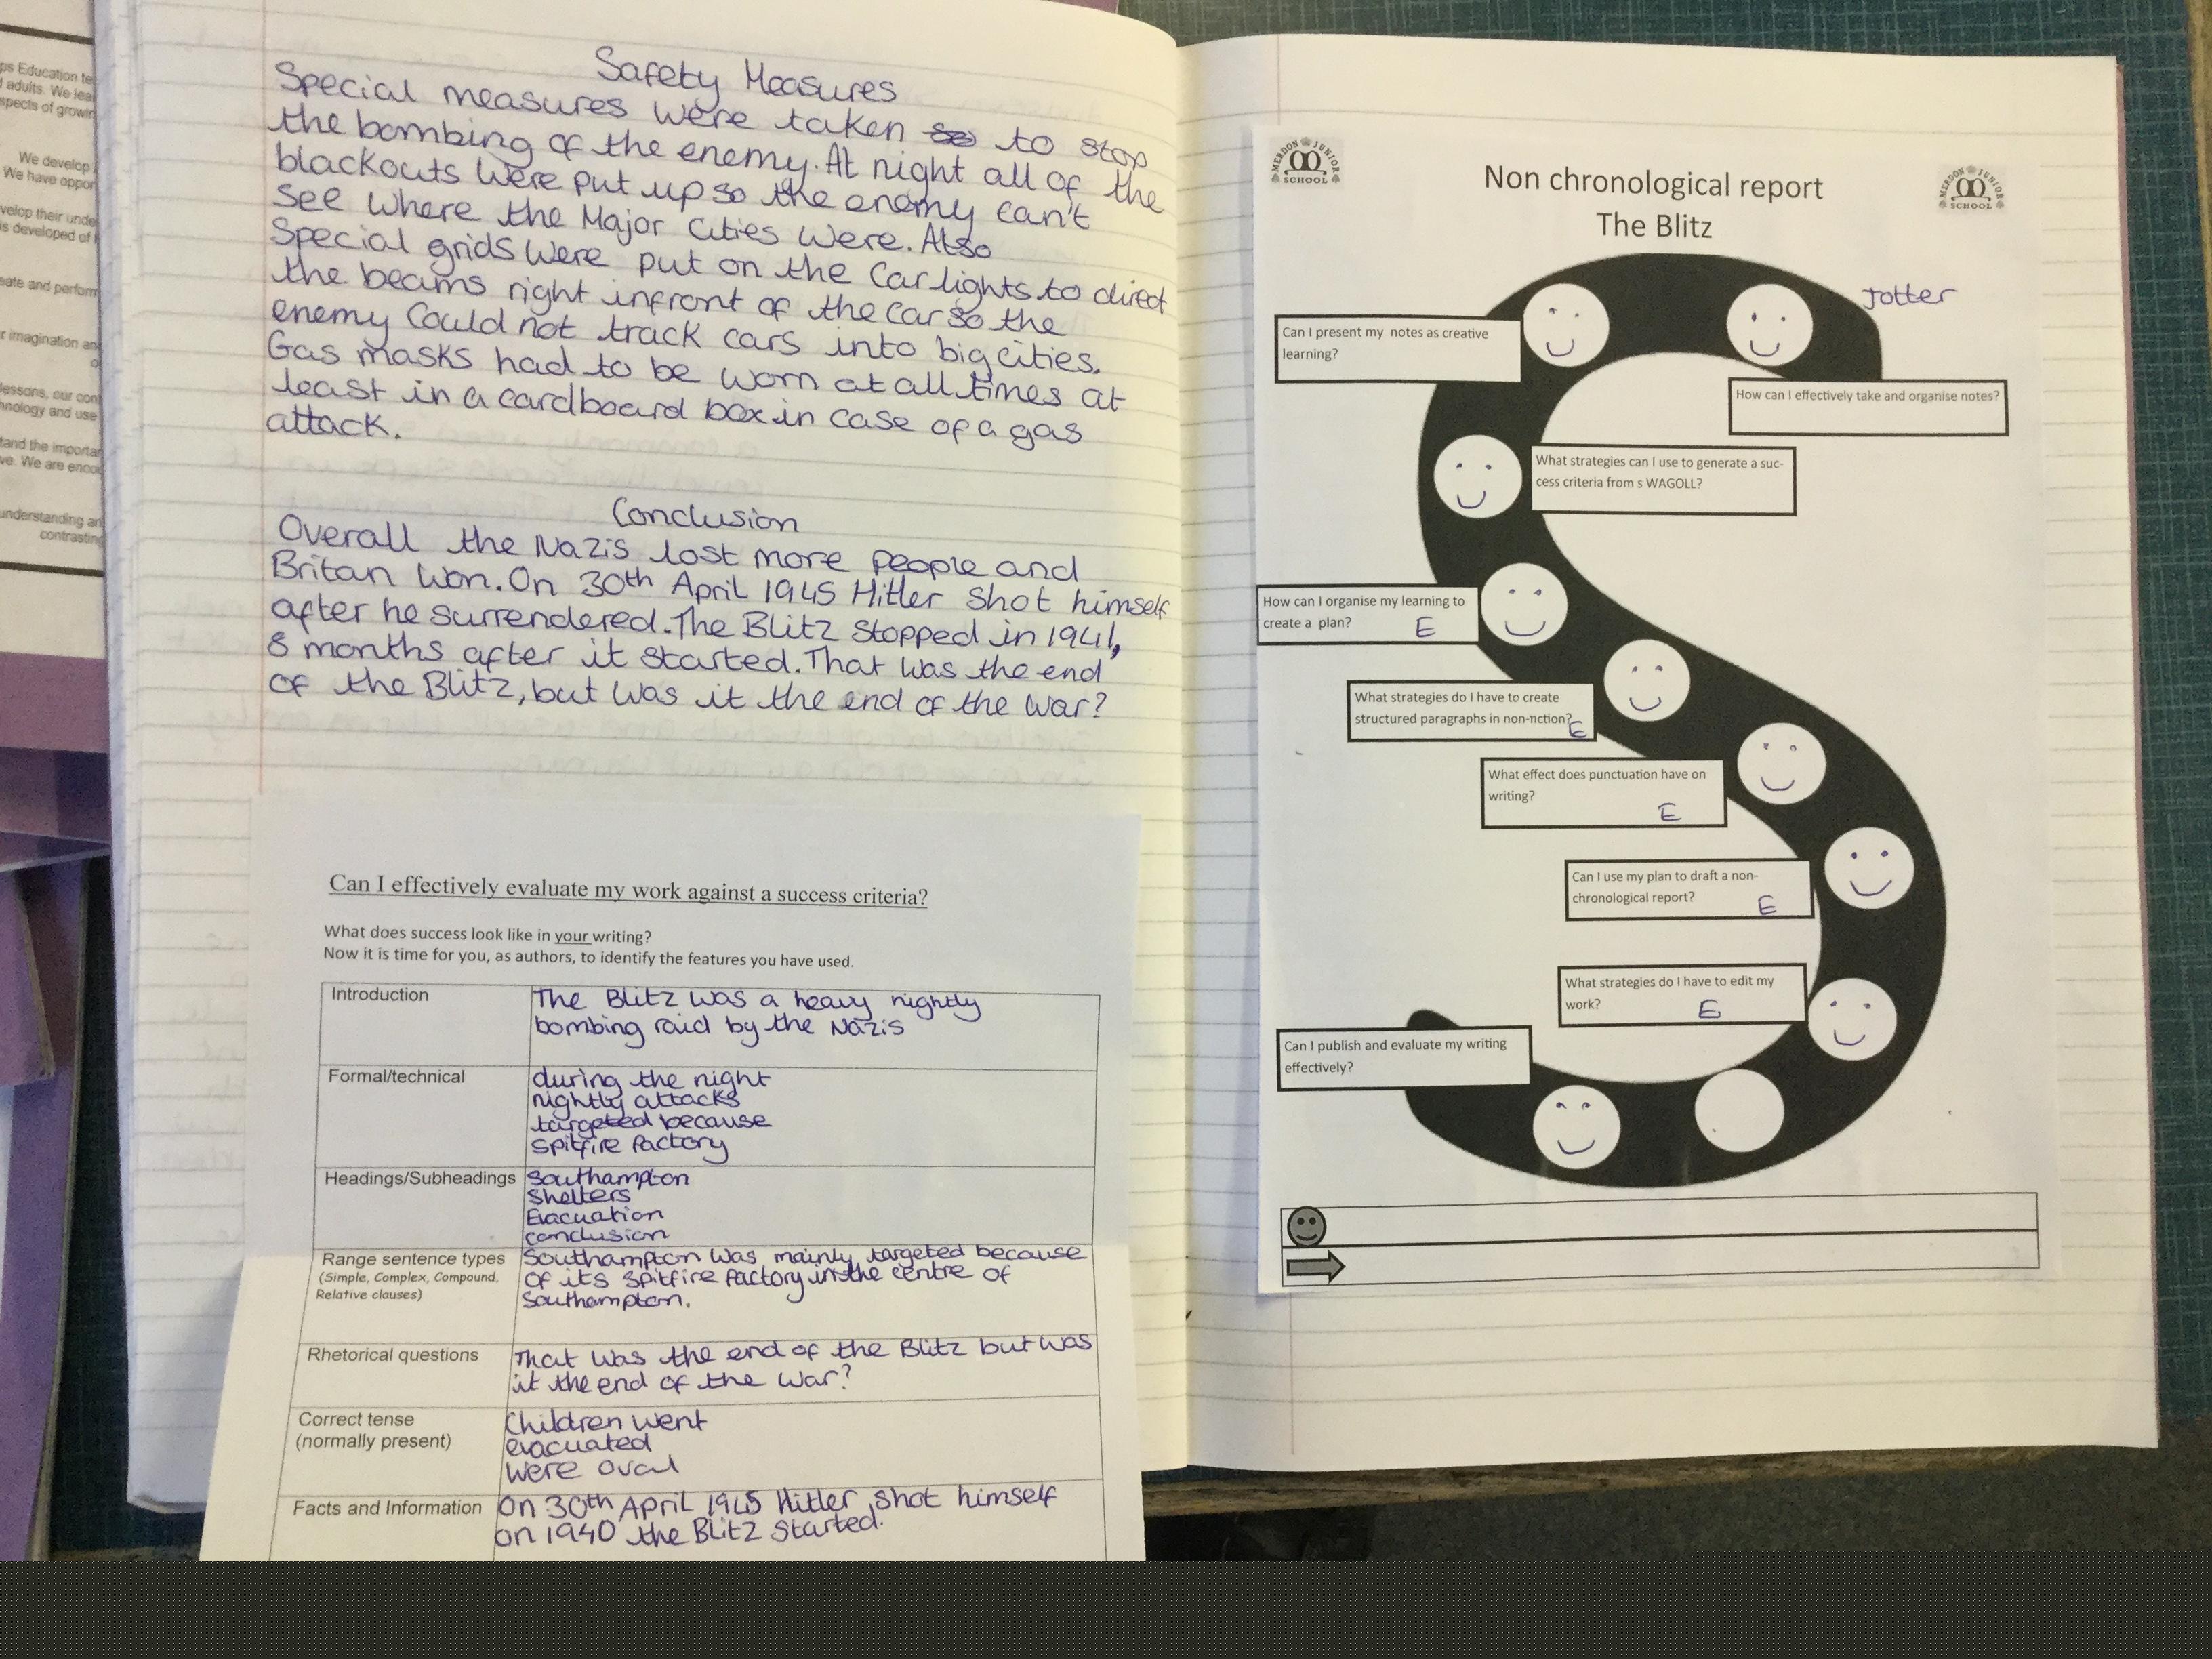 ps Education te
adults. We lea
spects of growin
We develop
We have oppor
velop their unde
s developed of
eate and perform
r imagination an
lessons, our con
hnology and use
tand the importan
ve. We are enco
understanding an
contrasting
Safety Measures
Special measures were taken to stop
the bombing of the enemy. At night all of the
blackouts were put up so the enemy can't
see where the Major Cities were. Also
Special grids were put on the Car lights to direct
the beams right infront of the car so the
enemy Could not track cars into big cities.
Gas masks had to be worn at all times at
least in a cardboard box in case of a gas
attack.
Conclusion
Overall the Nazis lost more people and
Britan won. On 30th April 1945 Hitler shot himself
after he surrendered. The Blitz stopped in 1941,
8 months after it started. That was the end
of the Blitz, but was it the end of the war?
Can I effectively evaluate my work against a success criteria?
What does success look like in your writing?
Now it is time for you, as authors, to identify the features you have used.
Introduction
The Blitz was a heavy nightly
bombing raid by the Nazis
Formal/technical
during the night
nightly attacks
targeted because
spitfire factory
Headings/Subheadings
Southampton
Shelters
Evacuation
conclusion
Range sentence types
(Simple, Complex, Compound,
Relative clauses)
Southampton was mainly targeted because
of its spitfire factory in the centre of
Southampton.
Rhetorical questions
That was the end of the Blitz but was
it the end of the war?
Correct tense
(normally present)
Children went
evacuated
were oval
Facts and Information
On 30th April 1945 Hitler shot himself
on 1940 the Blitz started.
MERDON JUNIOR
SCHOOL
Non chronological report
The Blitz
MERDON JUNIOR
SCHOOL
Jotter
Can I present my notes as creative
learning?
How can I effectively take and organise notes?
What strategies can I use to generate a suc-
cess criteria from s WAGOLL?
How can I organise my learning to
create a plan? E
What strategies do I have to create
structured paragraphs in non-fiction? E
What effect does punctuation have on
writing? E
Can I use my plan to draft a non-
chronological report? E
What strategies do I have to edit my
work? E
Can I publish and evaluate my writing
effectively?